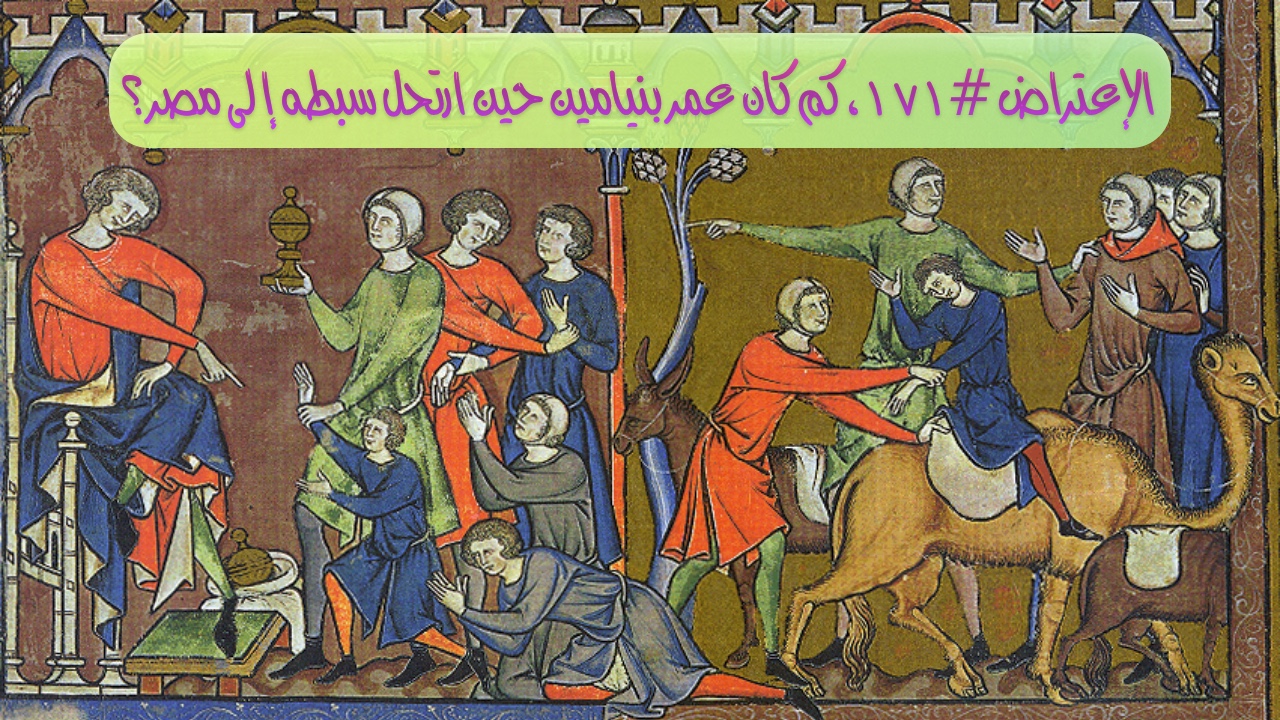 الإعتراض #١٧١، كم كان عمر بنيامين حين ارتحل سبطه إلى مصر؟